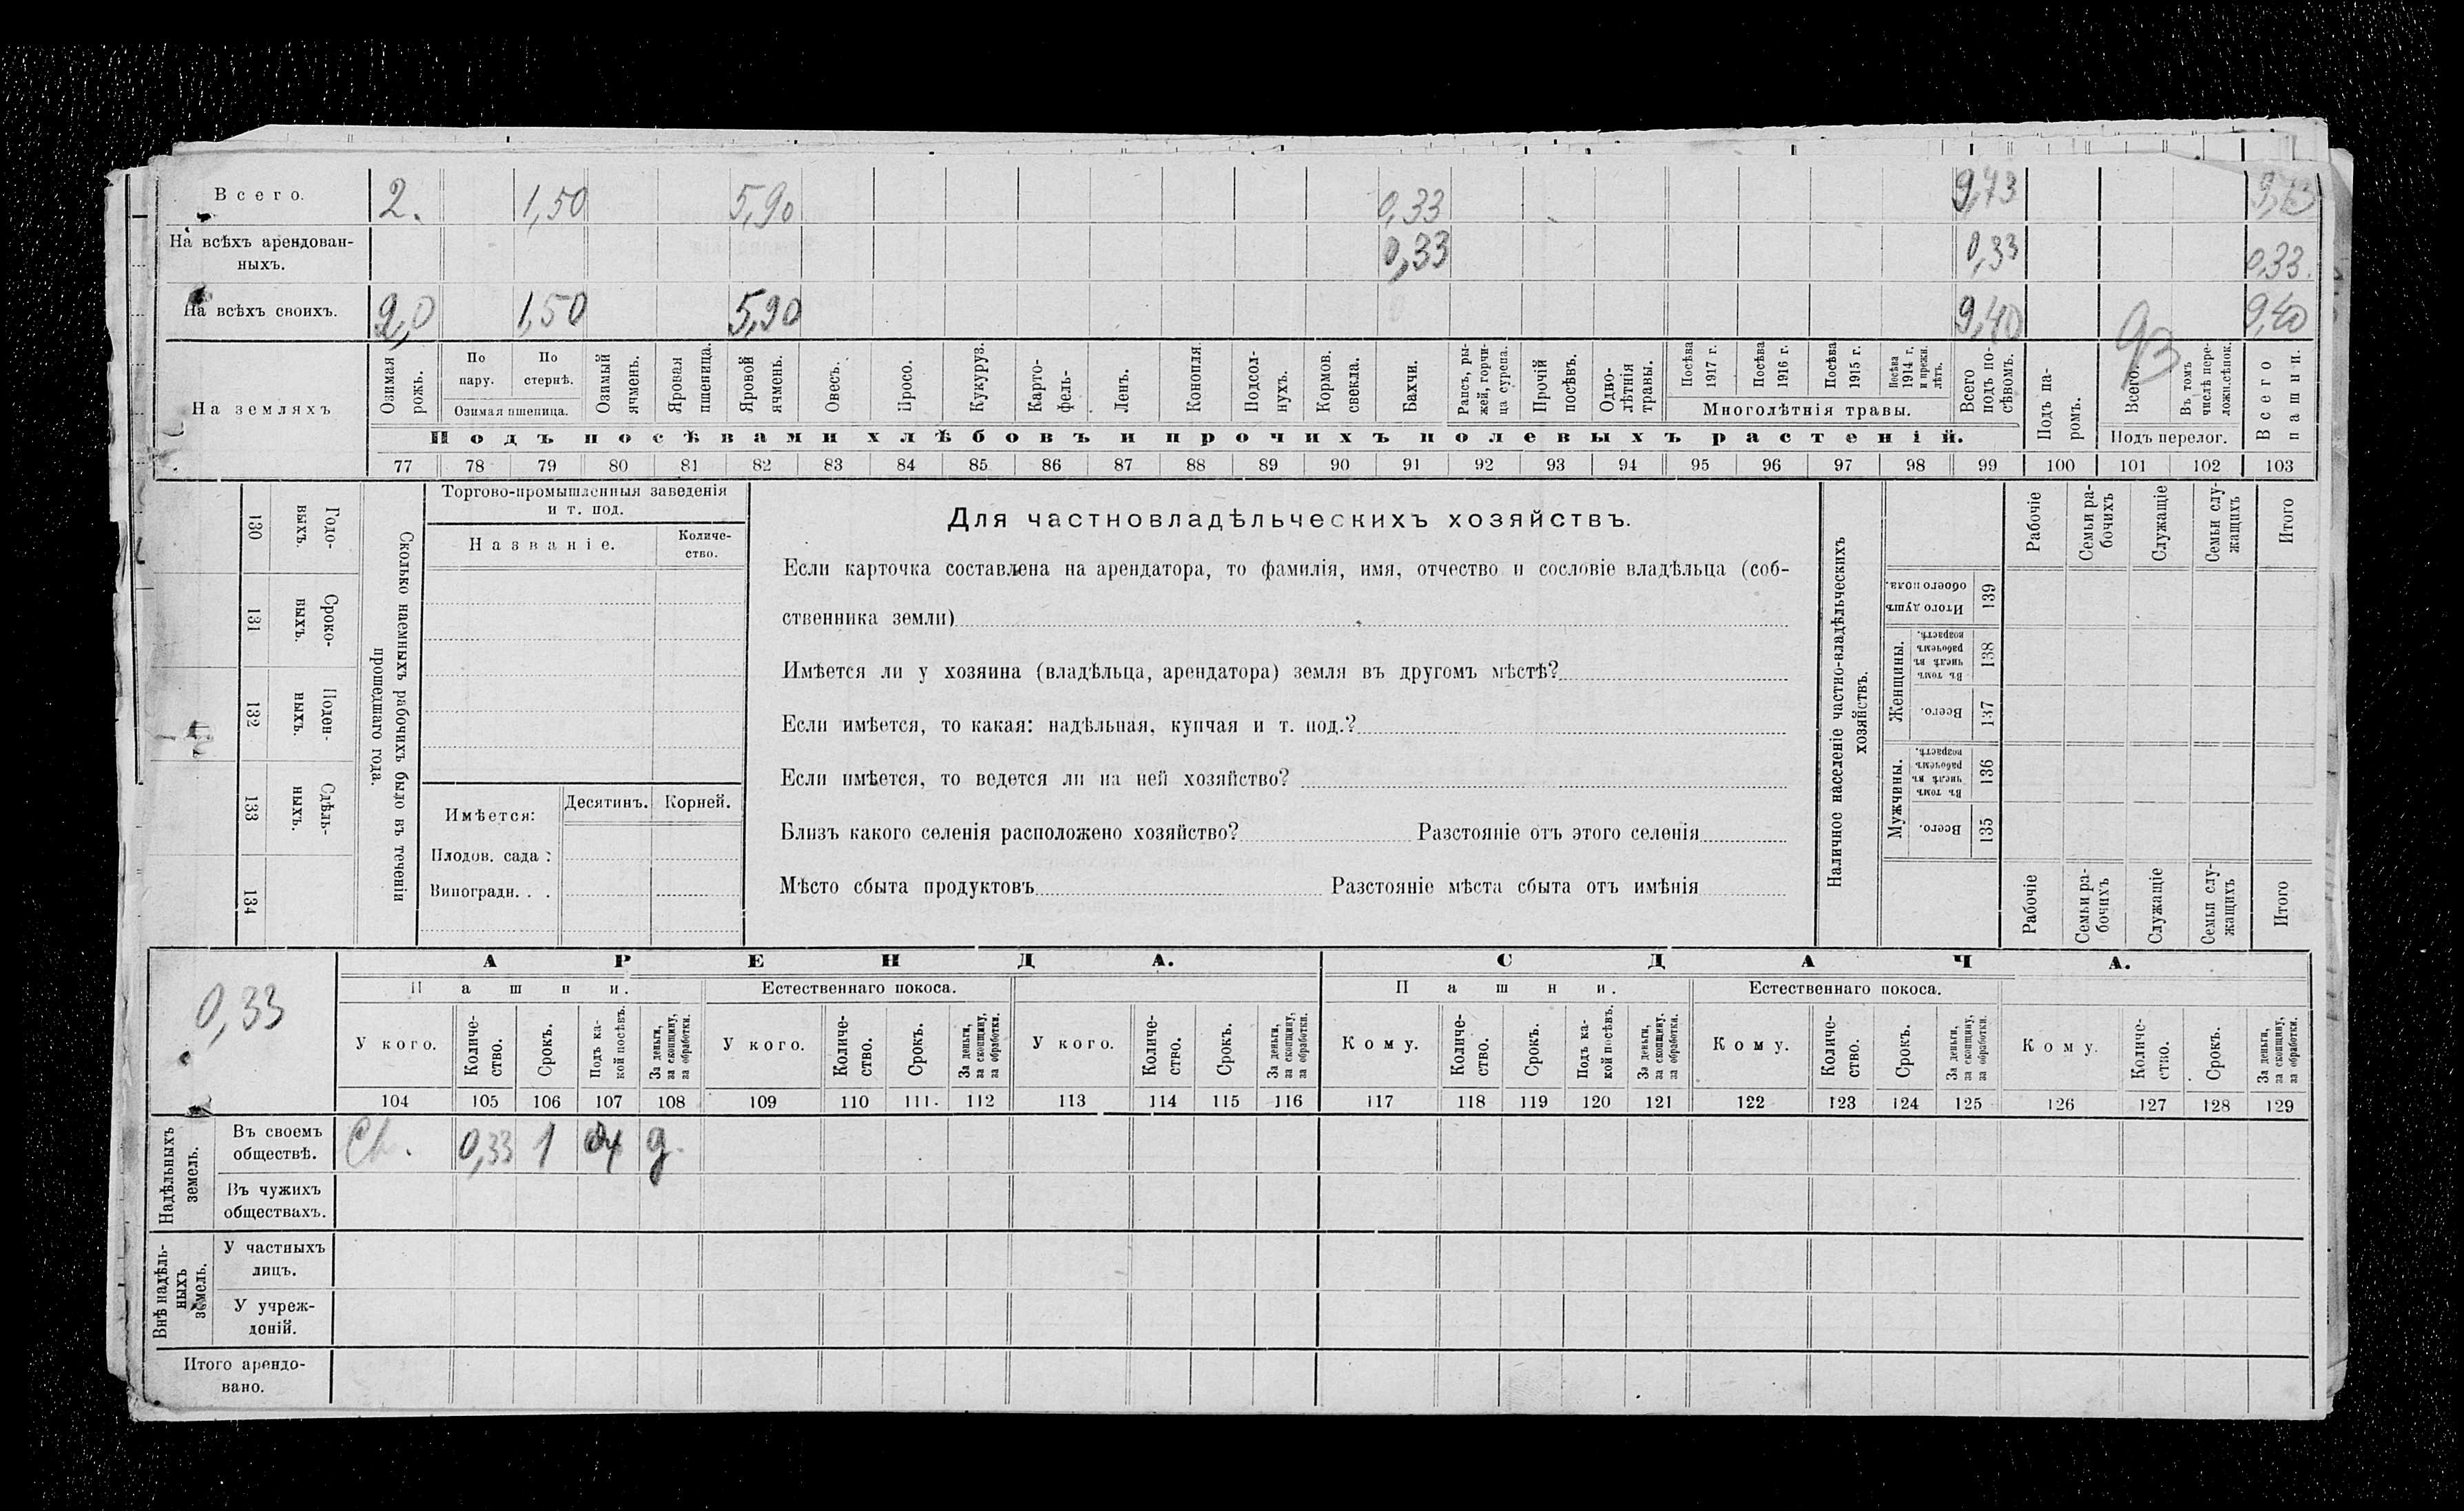 Всего. 2. 1,50 5,90 0,33 9,73 9,73
На всѣхъ арендован-
ныхъ. 0,33 0,33 0,33.
На всѣхъ своихъ. 2,0 1,50 5,90 9,40 9,40
На земляхъ
Озимая рожь.
По пару.
По стернѣ.
Озимая пшеница.
Озимый ячмень.
Яровая пшеница.
Яровой ячмень.
Овесъ.
Просо.
Кукуруз.
Карто-
фель-
Ленъ.
Конопля
Подсол-
нухъ.
Кормов.
свекла.
Бахчи.
Рапсъ, ры-
жей, горчи-
ца сурепа.
Прочій
посѣвъ.
Одно-
лѣтнія
травы.
Посѣва 1917 г.
Посѣва 1916 г.
Посѣва 1915 г.
Посѣва 1914 г. и прежн. лѣтъ.
Многолѣтнія травы.
Всего подъ по-
сѣвомъ.
Подъ па-
ромъ.
Всего.
Въ томъ числѣ пере-
лож.сѣнок.
Подъ перелог.
Всего пашни.
Подъ посѣвами хлѣбовъ и прочихъ полевыхъ растеній.
77 78 79 80 81 82 83 84 85 86 87 88 89 90 91 92 93 94 95 96 97 98 99 100 101 102 103
Сколько наемныхъ рабочихъ было въ теченіи
прошедшаго года.
Годо-
выхъ. 130
Сроко-
выхъ. 131
Поден-
ныхъ. 132
Сдѣль-
ныхъ. 133
134
Торгово-промышленныя заведенія
и т. под.
Названіе. Количе-
ство.
Имѣется: Десятинъ. Корней.
Плодов. сада :
Виноградн. . .
Для частновладѣльческихъ хозяйствъ.
Если карточка составлена на арендатора, то фамилія, имя, отчество и сословіе владѣльца (соб-
ственника земли)
Имѣется ли у хозяина (владѣльца, арендатора) земля въ другомъ мѣстѣ?
Если имѣется, то какая: надѣльная, купчая и т. под.?
Если имѣется, то ведется ли на ней хозяйство?
Близъ какого селенія расположено хозяйство? Разстояніе отъ этого селенія
Мѣсто сбыта продуктовъ Разстояніе мѣста сбыта отъ имѣнія
Наличное населеніе частно-владѣльческихъ
хозяйствъ.
Рабочіе
Семьи ра-
бочихъ
Служащіе
Семьи слу-
жащихъ
Итого
Итого душъ
обоего пола. 139
Женщины.
Въ томъ
числѣ въ
рабочемъ
возрастѣ. 138
Всего. 137
Мужчины.
Въ томъ
числѣ въ
рабочемъ
возрастѣ. 136
Всего. 135
Рабочіе
Семьи ра-
бочихъ
Служащіе
Семьи слу-
жащихъ
Итого
АРЕНДА. СДАЧА.
0,33
Пашни. Естественнаго покоса. Пашни. Естественнаго покоса.
У кого. Количе-
ство. Срокъ. Подъ ка-
кой посѣвъ. За деньги,
за скопщину,
за обработки.
У кого. Количе-
ство. Срокъ. За деньги,
за скопщину,
за обработки.
У кого. Количе-
ство. Срокъ. За деньги,
за скопщину,
за обработки.
Кому. Количе-
ство. Срокъ. Подъ ка-
кой посѣвъ. За деньги,
за скопщину.
за обработки.
Кому. Количе-
ство. Срокъ. За деньги,
за скопщину,
за обработки.
Кому. Количе-
ство. Срокъ. За деньги,
за скопщину,
за обработки.
104 105 106 107 108 109 110 111. 112 113 114 115 116 117 118 119 120 121 122 123 124 125 126 127 128 129
Надѣльныхъ
земель.
Въ своемъ
обществѣ. 0,33 1 д.
Въ чужихъ
обществахъ.
Внѣ надѣль-
ныхъ
земель.
У частныхъ
лицъ.
У учреж-
деній.
Итого арендо-
вано.